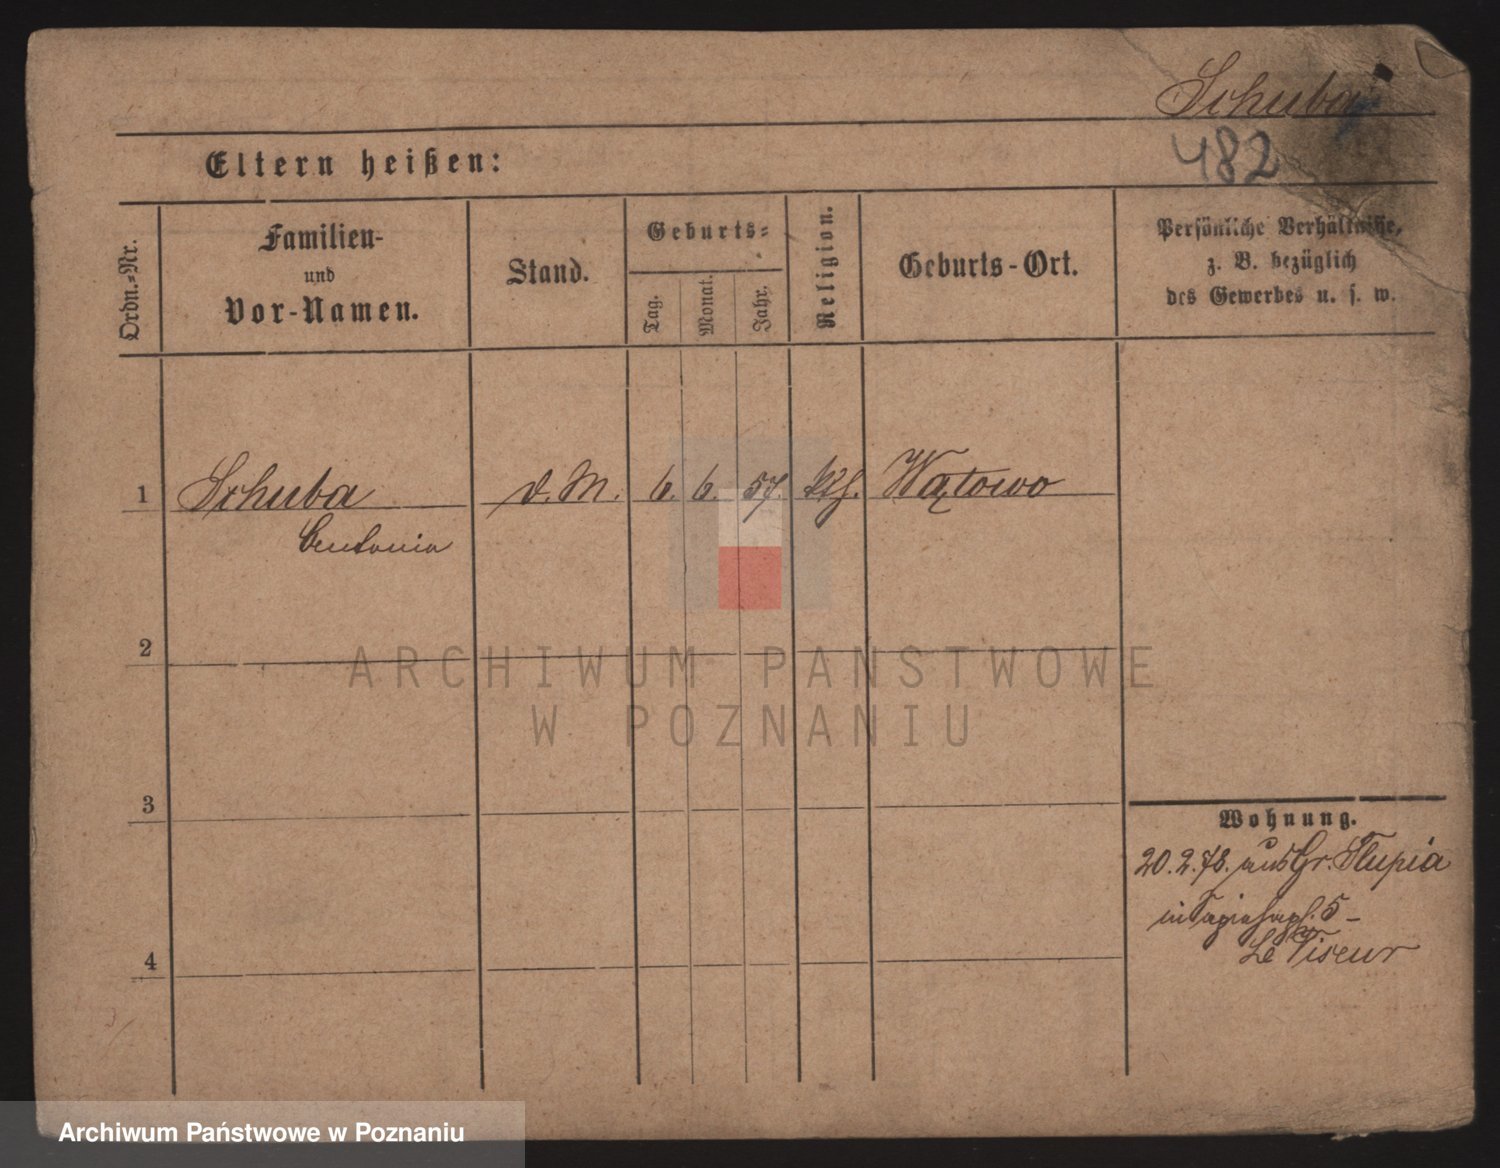 Schuba
482
Eltern heißen:
Ordn.-Nr.
Familien-
und
Vor-Namen.
Stand.
Geburts-
Tag.
Monat.
Jahr.
Religion.
Geburts-Ort.
Persönliche Verhältnisse,
z. B. bezüglich
des Gewerbes u. s. w.
1 Schuba d. M. 6. 6. 57. kth. Wątowo
Antonia
2
3
4
Wohnung.
20.2.78. aus Gr. Slupia
in 5 -
Le Viseur
ARCHIWUM PAŃSTWOWE
W POZNANIU
Archiwum Państwowe w Poznaniu